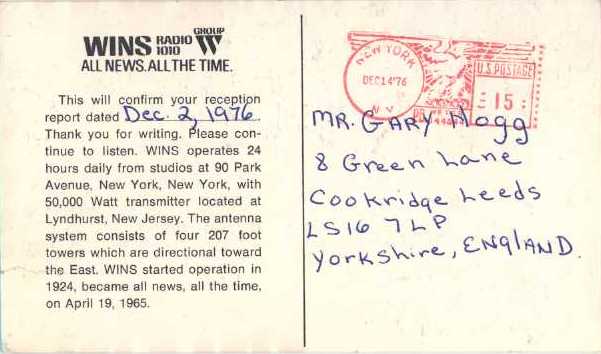 WINS RADIO 1010 GROUP W
ALL NEWS. ALL THE TIME.
This will confirm your reception
report dated Dec. 2, 1976
Thank you for writing. Please con-
tinue to listen. WINS operates 24
hours daily from studios at 90 Park
Avenue, New York, New York, with
50,000 Watt transmitter located at
Lyndhurst, New Jersey. The antenna
system consists of four 207 foot
towers which are directional toward
the East. WINS started operation in
1924, became all news, all the time,
on April 19, 1965.
NEW YORK
DEC 14 '76
N.Y.
U.S. POSTAGE
15
MR. GARY Hogg
8 Green Lane
Cookridge Leeds
LS16 7LP
Yorkshire, ENGlAND.